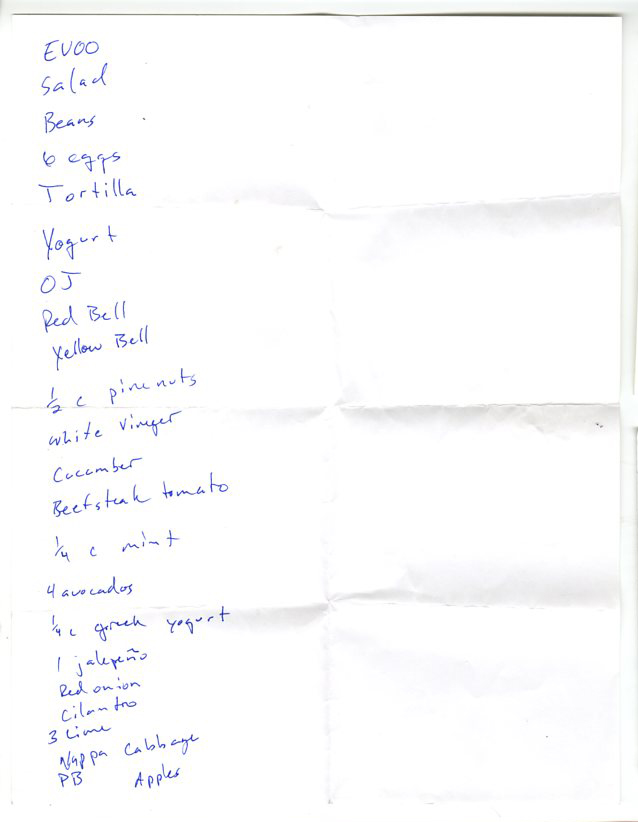 EVOO
Salad
Beans
6 eggs
Tortilla
Yogurt
OJ
Red Bell
Yellow Bell
1/2 c pine nuts
white vinger
Cucumber
Beefsteak tomato
1/4 c mint
4 avocados
1/4 c greek yogurt
1 jalepeño
Red onion
Cilantro
3 Lime
Nappa Cabbage
PB Apples